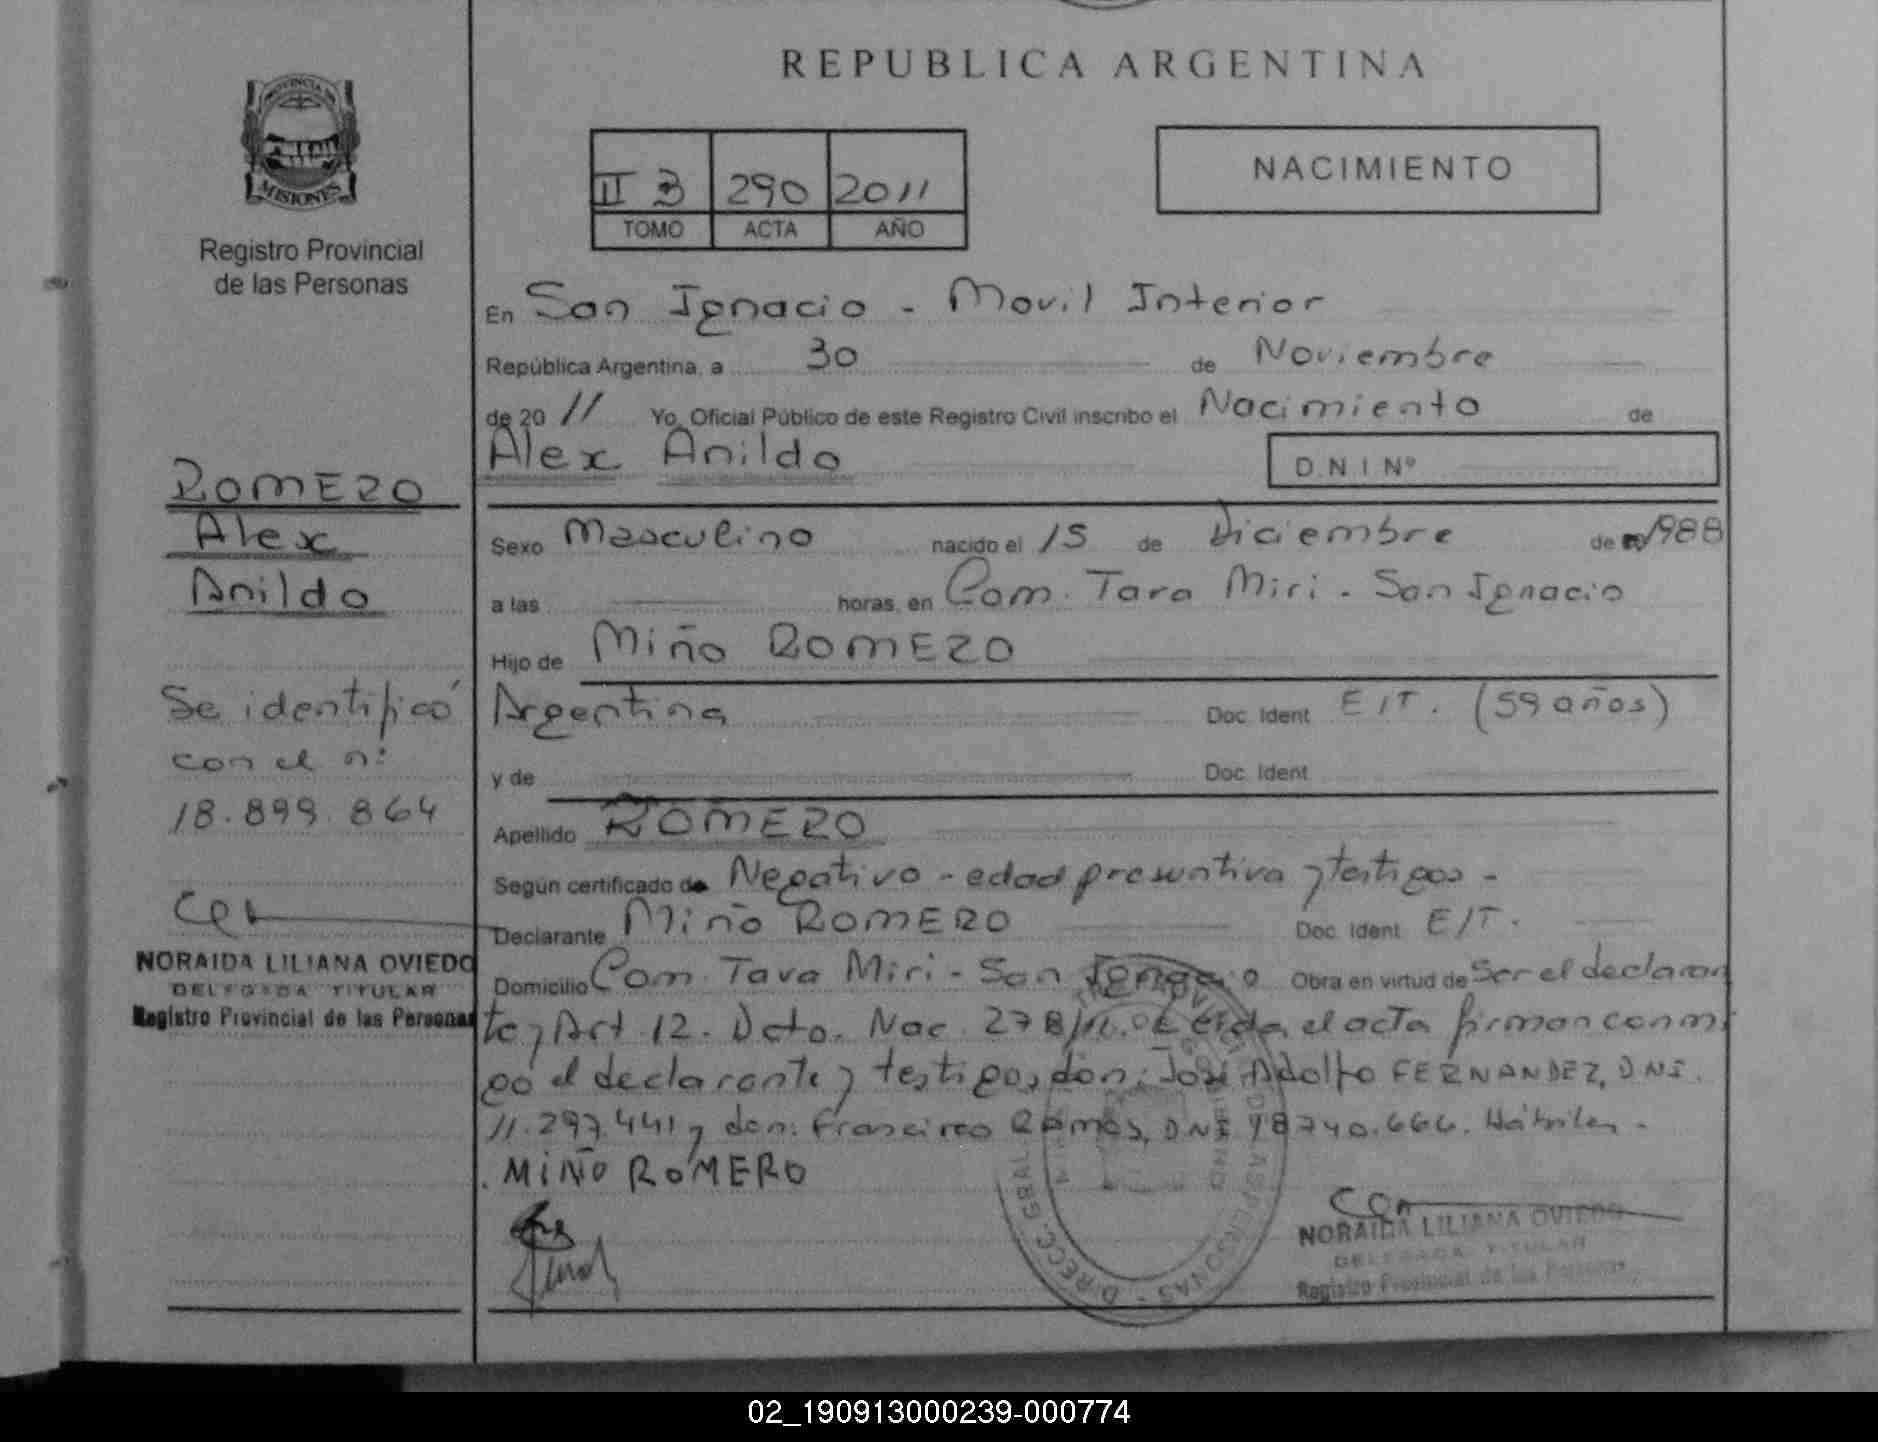 REPUBLICA ARGENTINA
PROVINCIA DE
MISIONES
Registro Provincial
de las Personas
II B 290 2011
TOMO ACTA AÑO
NACIMIENTO
En San Ignacio - Movil Interior
República Argentina, a 30 de Noviembre
de 20 11 Yo, Oficial Público de este Registro Civil inscribo el Nacimiento de
Alex Anildo
D.N.I. Nº
ROMERO
Alex
Anildo
Sexo Masculino nacido el 15 de Diciembre de 1988
a las horas, en Com. Tava Miri - San Ignacio
Hijo de Miño ROMERO
Argentina Doc. Ident. E/T. (59 años)
y de Doc. Ident.
Apellido ROMERO
Se identificó
con el nº
18.899.864
NORAIDA LILIANA OVIEDO
DELEGADA TITULAR
Registro Provincial de las Personas
Según certificado de Negativo - edad presuntiva y testigos -
Declarante Miño ROMERO Doc. Ident. E/T.
Domicilio Com. Tava Miri - San Ignacio Obra en virtud de Ser el declaran
te y Art 12. Dcto. Nac. 278/11. Leida el acta firman conmi
go el declarante y testigos, don: José Adolfo FERNANDEZ, DNI.
11.297.441 y don: Francisco Ramos, DNI 18740.666. Hábiles -
MIÑO ROMERO
NORAIDA LILIANA OVIEDO
DELEGADA TITULAR
Registro Provincial de las Personas
02_190913000239-000774